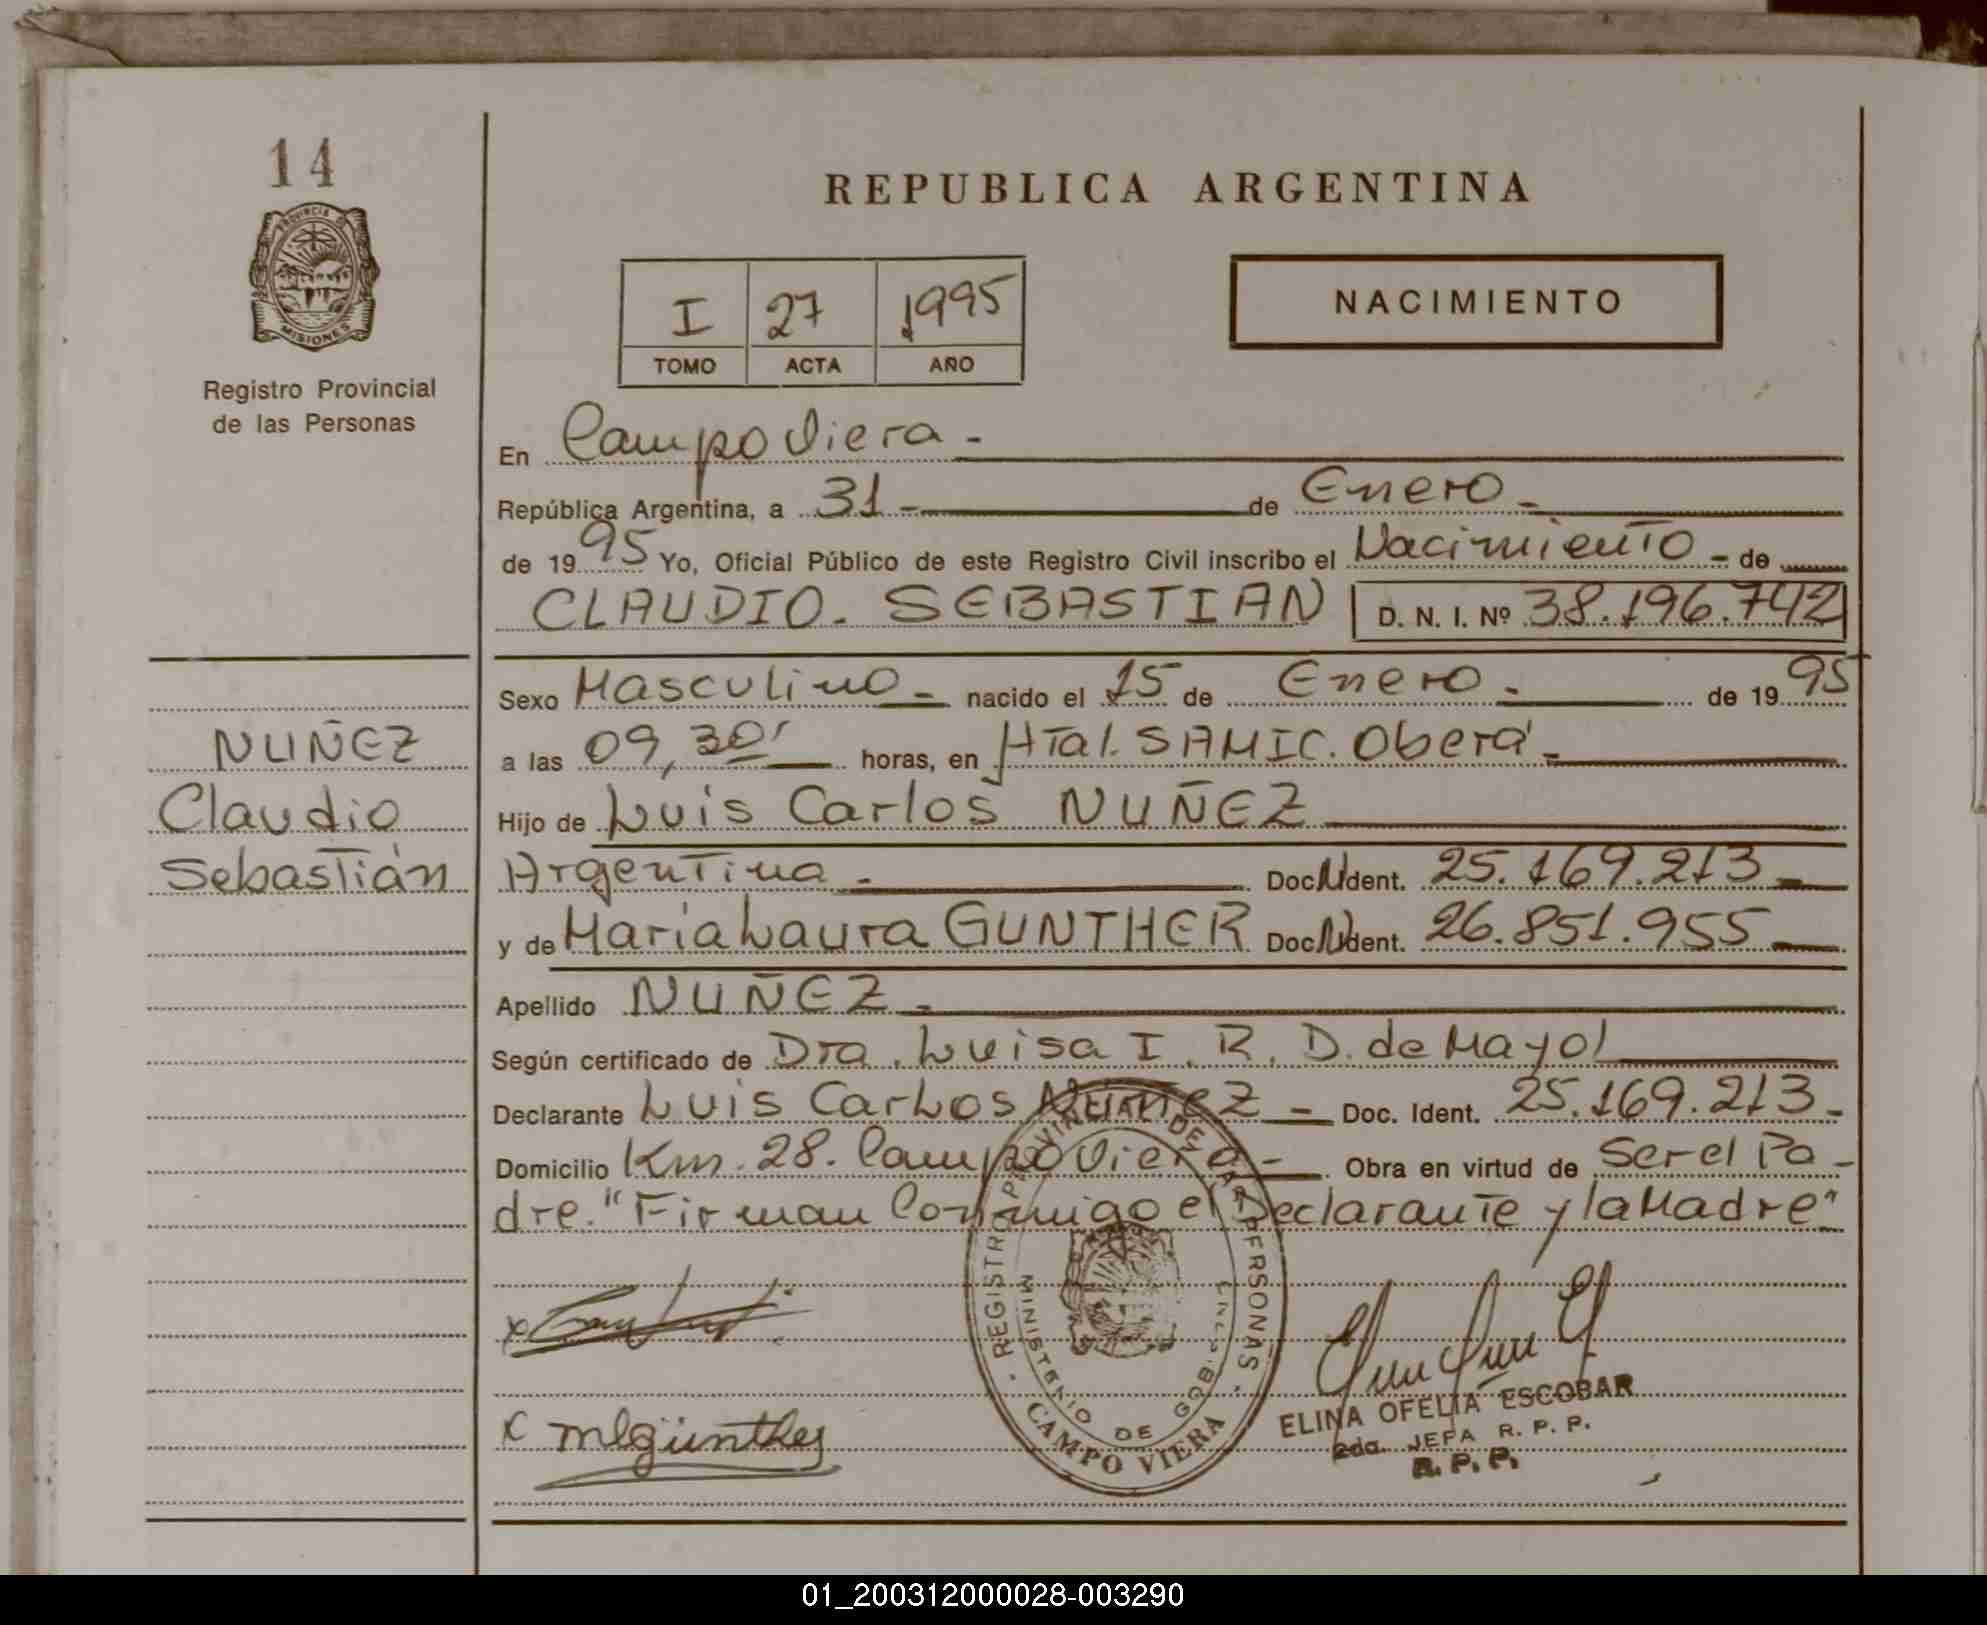 14
PROVINCIA DE
MISIONES
Registro Provincial
de las Personas
REPUBLICA ARGENTINA
I 27 1995
TOMO ACTA AÑO
NACIMIENTO
En Campo Viera -
República Argentina, a 31 - de Enero -
de 1995 Yo, Oficial Público de este Registro Civil inscribo el Nacimiento - de
CLAUDIO. SEBASTIAN D. N. I. Nº 38.196.742
NUÑEZ
Claudio
Sebastián
Sexo Masculino - nacido el 15 de Enero - de 1995
a las 09,30' horas, en Htal. SAMIC. Oberá -
Hijo de Luis Carlos NUÑEZ
Argentina - Doc. Ident. 25.169.213 -
y de Maria Laura GUNTHER Doc. Ident. 26.851.955
Apellido NUÑEZ -
Según certificado de Dra. Luisa I. R. D. de Mayol
Declarante Luis Carlos Nuñez - Doc. Ident. 25.169.213 -
Domicilio Km. 28. Campo Viera - Obra en virtud de Ser el Pa-
dre. "Firman Conmigo el Declarante y la Madre"
REGISTRO PROVINCIAL DE LAS PERSONAS
MINISTERIO DE GOB.
CAMPO VIERA
x
x mlgünther
ELINA OFELIA ESCOBAR
2da. JEFA R. P. P.
R. P. P.
01_200312000028-003290